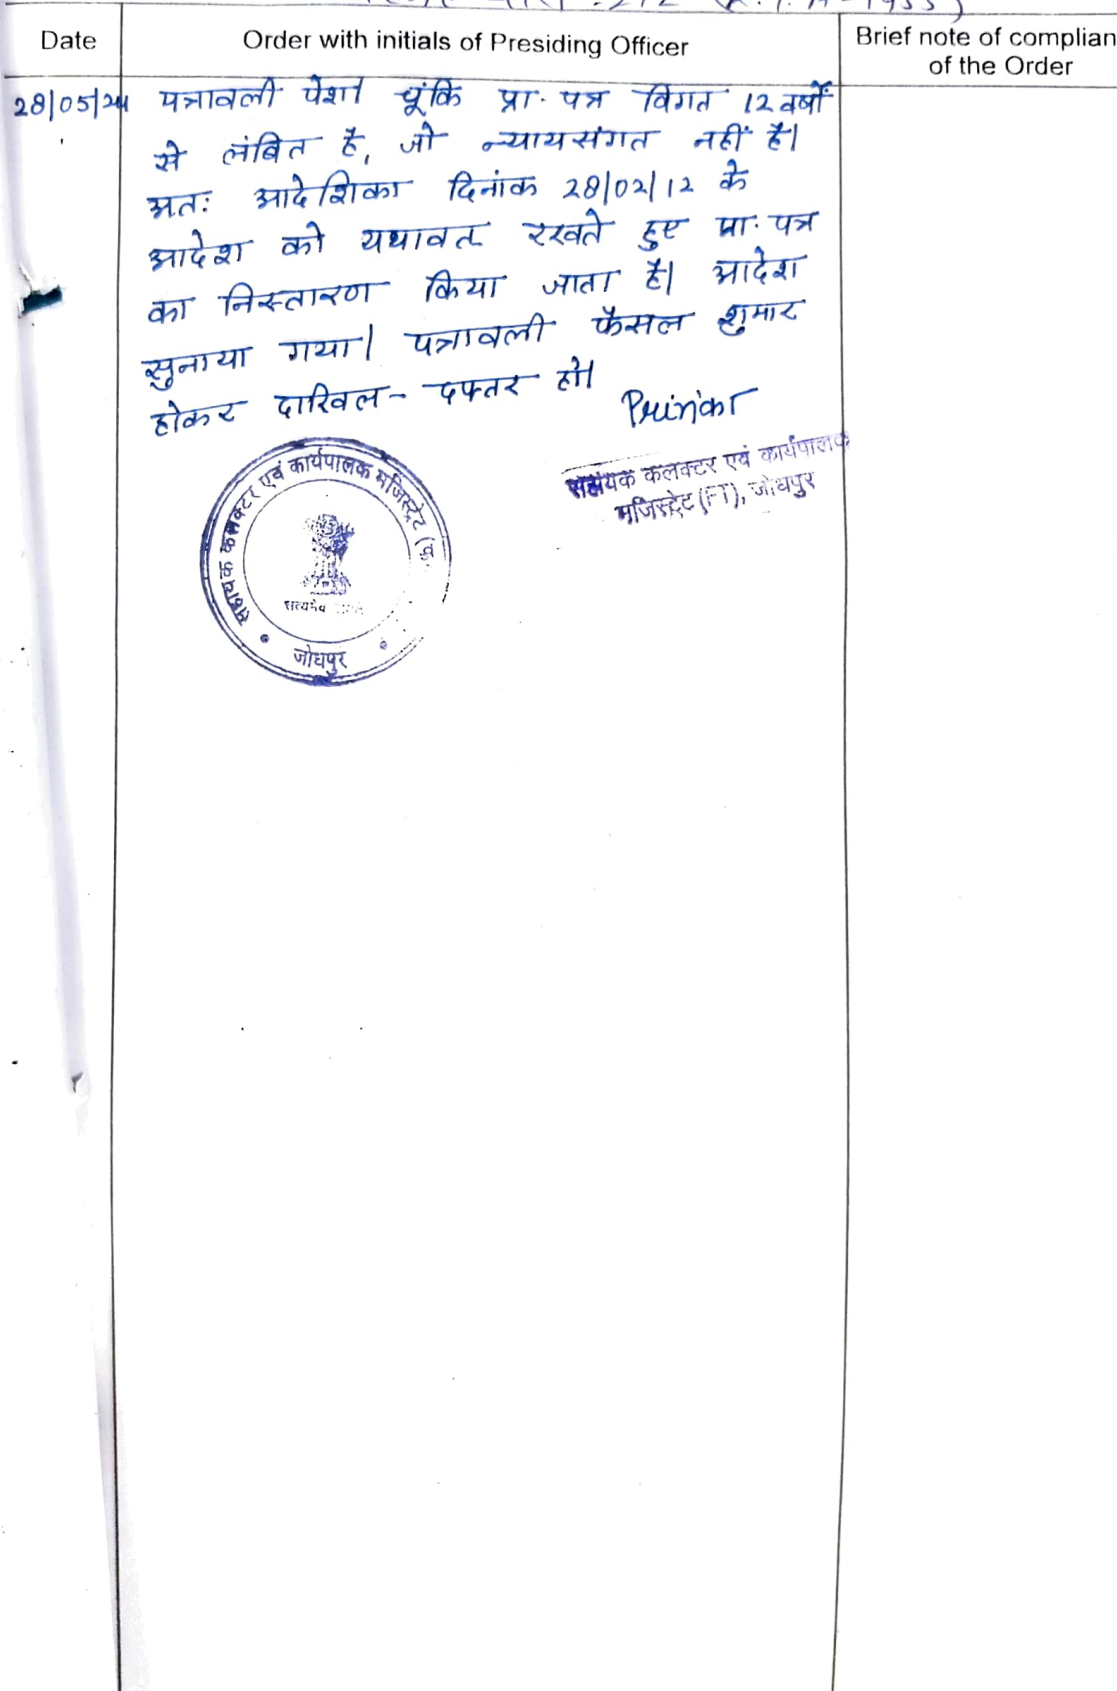 Date
Order with initials of Presiding Officer
Brief note of complian
of the Order
28/05/24
पत्रावली पेश। चूंकि प्रा. पत्र विगत 12 वर्षों
से लंबित है, जो न्यायसंगत नहीं है।
अतः आदेशिका दिनांक 28/02/12 के
आदेश को यथावत रखते हुए प्रा. पत्र
का निस्तारण किया जाता है। आदेश
सुनाया गया। पत्रावली फैसल शुमार
होकर दाखिल-दफ्तर हो।
सहायक कलक्टर एवं कार्यपालक
मजिस्ट्रेट (FT), जोधपुर
सहायक कलक्टर एवं कार्यपालक मजिस्ट्रेट
सत्यमेव
जोधपुर